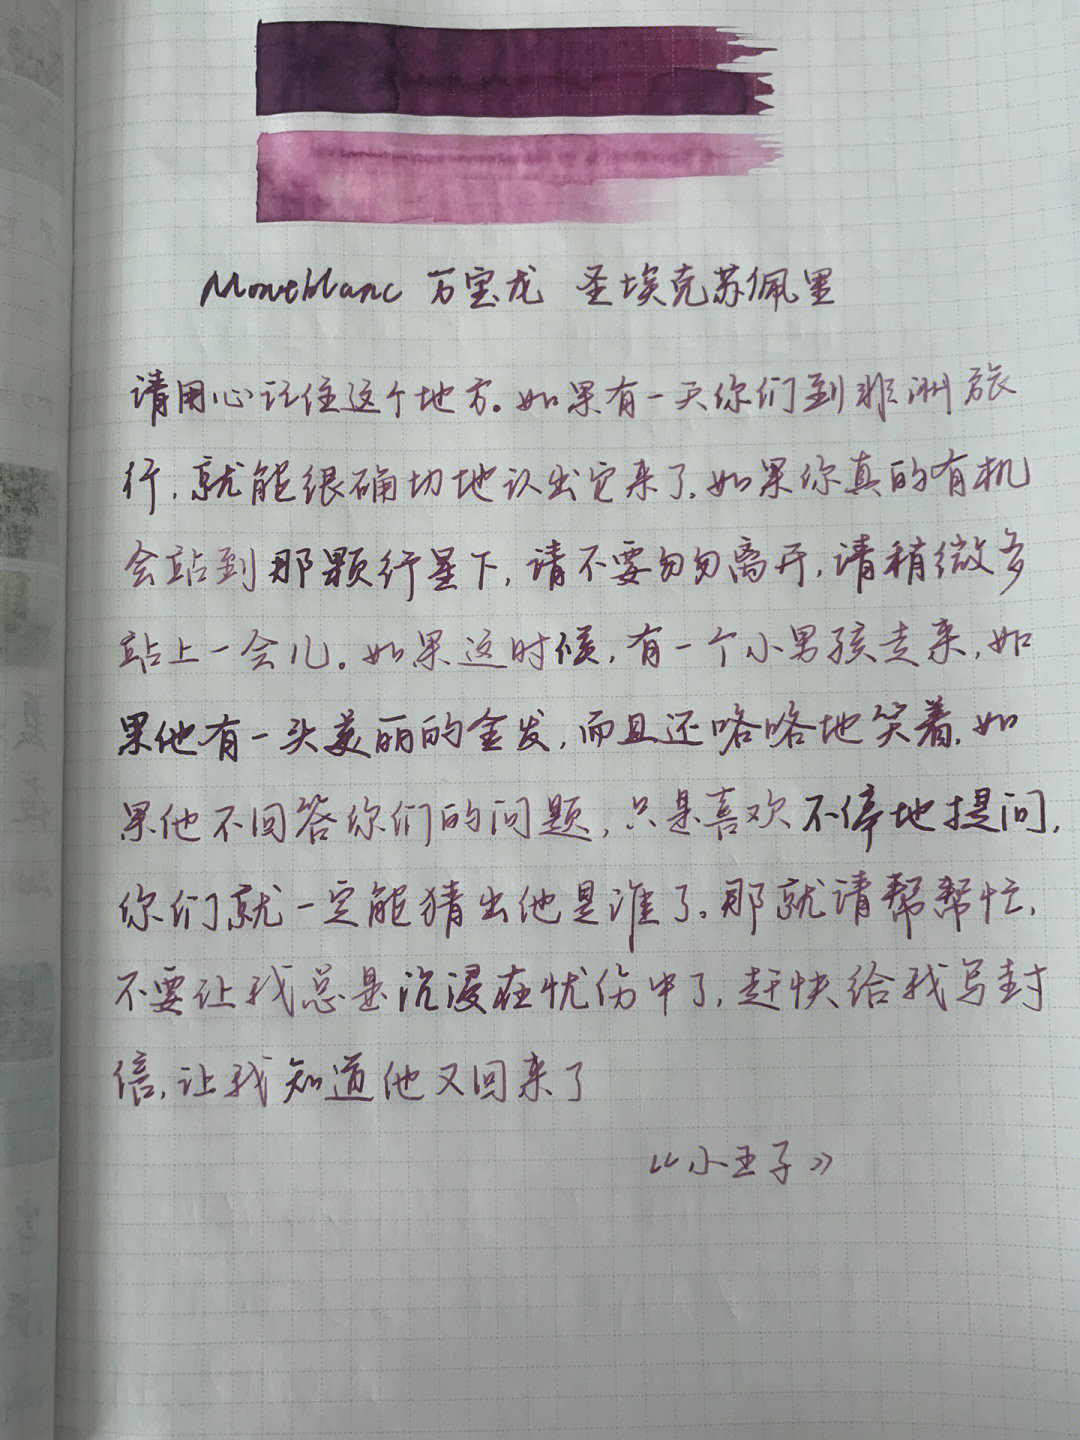 Montblanc 万宝龙 圣埃克苏佩里
请用心记住这个地方。如果有一天你们到非洲旅
行,就能很确切地认出它来了。如果你真的有机
会站到那颗行星下,请不要匆匆离开,请稍微多
站上一会儿。如果这时候,有一个小男孩走来,如
果他有一头美丽的金发,而且还咯咯地笑着,如
果他不回答你们的问题,只是喜欢不停地提问,
你们就一定能猜出他是谁了。那就请帮帮忙,
不要让我总是沉浸在忧伤中了,赶快给我写封
信,让我知道他又回来了
《小王子》